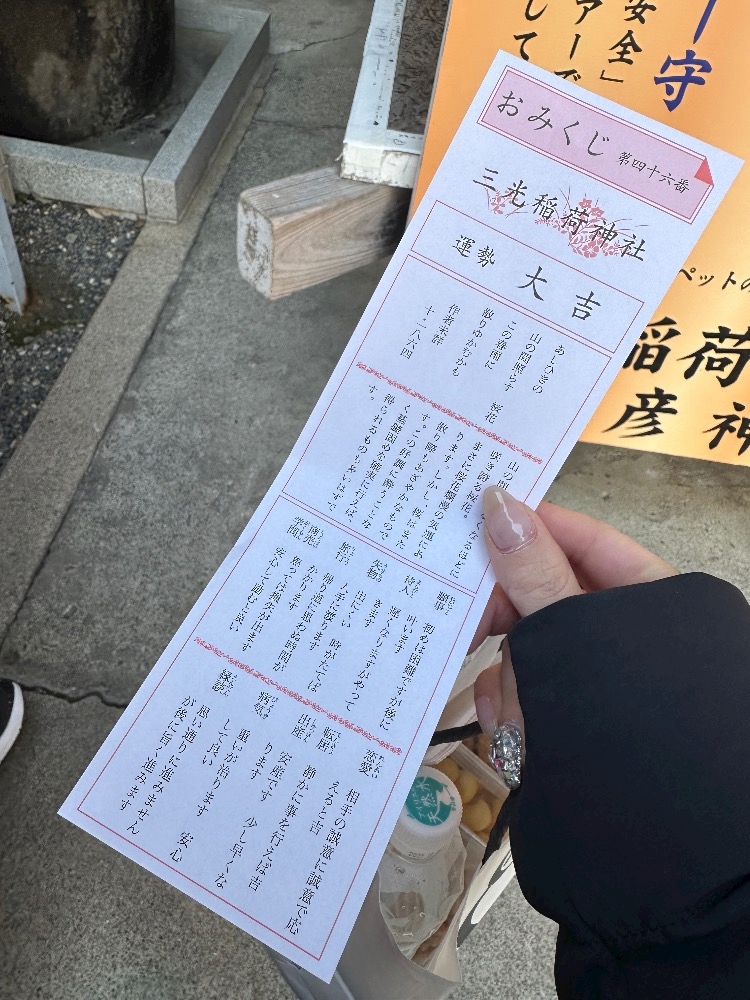 おみくじ 第四十六番
三光稲荷神社
運勢 大吉
あしひきの
山の間照らす 桜花
この春雨に
散りゆかむかも
作者未詳
十・一八六四
山の間
咲き誇る桜花。
まさに桜花爛漫の気運にあ
ります。しかし、桜はまた
散り際もあざやかなもので
す。この好調に酔うことな
く基礎固めを確実に行えば、
得られるものも多いはずで
す。
願事 初めは困難ですが後に
叶います
待人 遅くなりますがやって
きます
失物 出にくい 時がたてば
人手に渡ります
旅行 帰り道に思わぬ時間が
かかります
商売 焦っては損失が出ます
学問 安心して励むと良い
恋愛 相手の誠意に誠意で応
えると吉
転居 静かに事を行えば吉
出産 安産です 少し早くな
ります
病気 重いが治ります 安心
して良い
縁談 思い通りに進みません
が後に旨く進みます
守
安全」
アーで
して
ペットの
稲荷神
彦